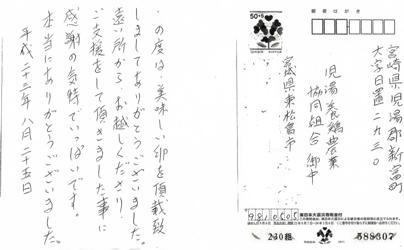 この度は、美味しい卵を頂戴致
しましてありがとうございました。
遠い所から、お越しくださり
ご支援をして頂きました事に
感謝の気持でいっぱいです。
本当にありがとうございました。
平成二十三年八月二十五日
郵便はがき
50+5
宮崎県児湯郡新富町
大字日置二九三〇
児湯養鶏農業
協同組合御中
宮城県東松島市
230組
588607